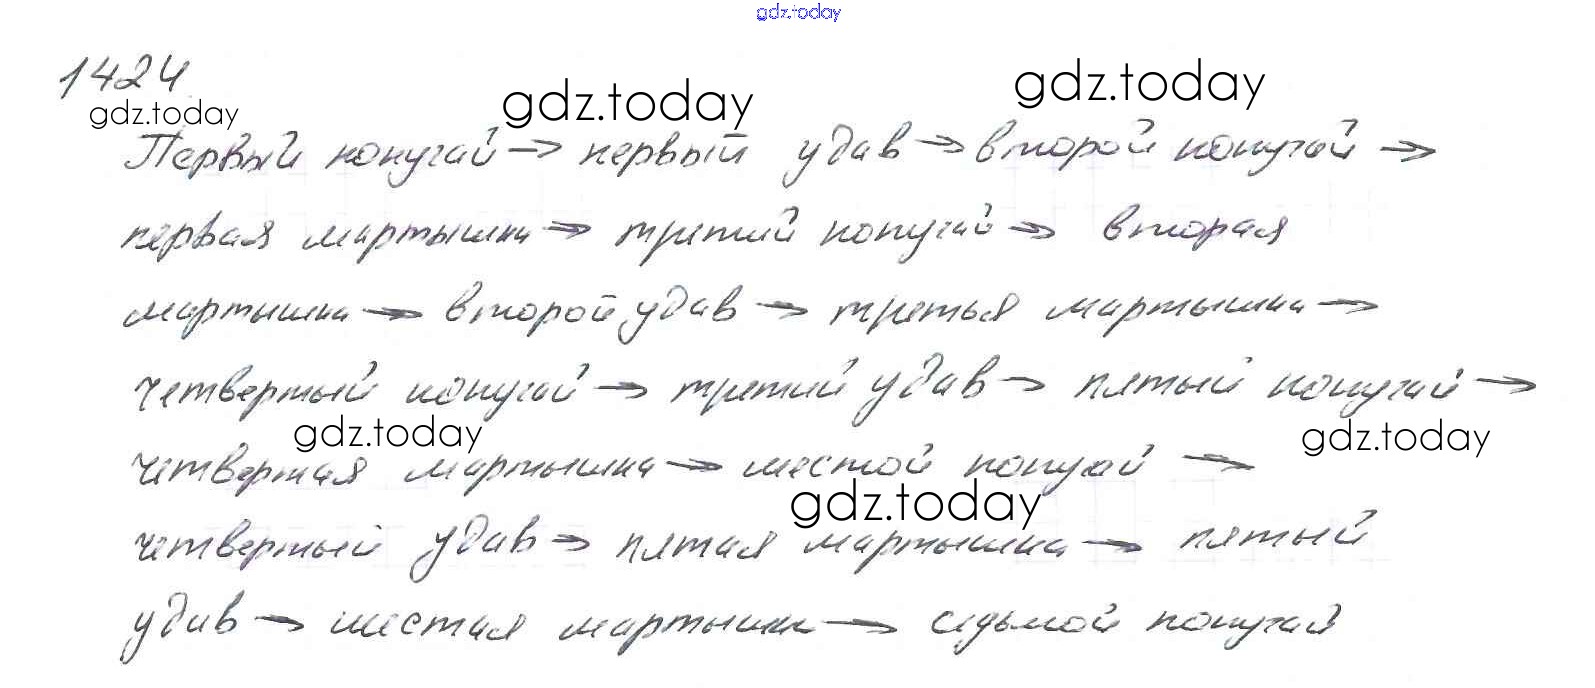 gdz.today
1424
gdz.today gdz.today gdz.today
Первый попугай → первый удав → второй попугай →
первая мартышка → третий попугай → вторая
мартышка → второй удав → третья мартышка →
четвертый попугай → третий удав → пятый попугай →
gdz.today gdz.today
четвертая мартышка → шестой попугай →
gdz.today
четвертый удав → пятая мартышка → пятый
удав → шестая мартышка → седьмой попугай